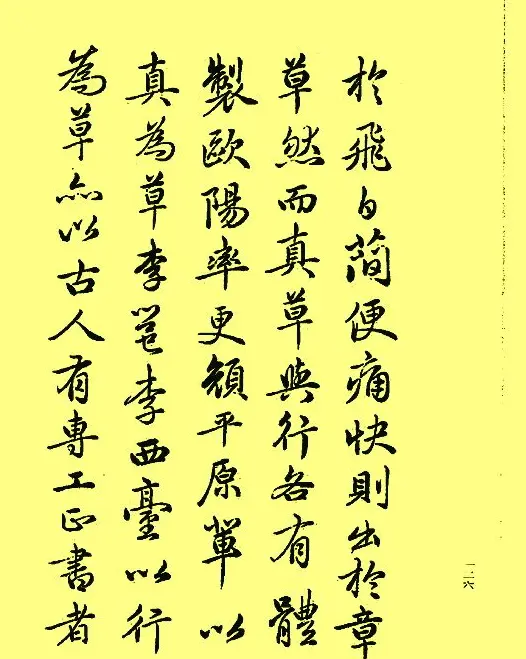 於飛白簡便痛快則出於章
草然而真草與行各有體
製歐陽率更顏平原輩以
真為草李邕李西臺以行
為草亦以古人有專工正書者
一二六